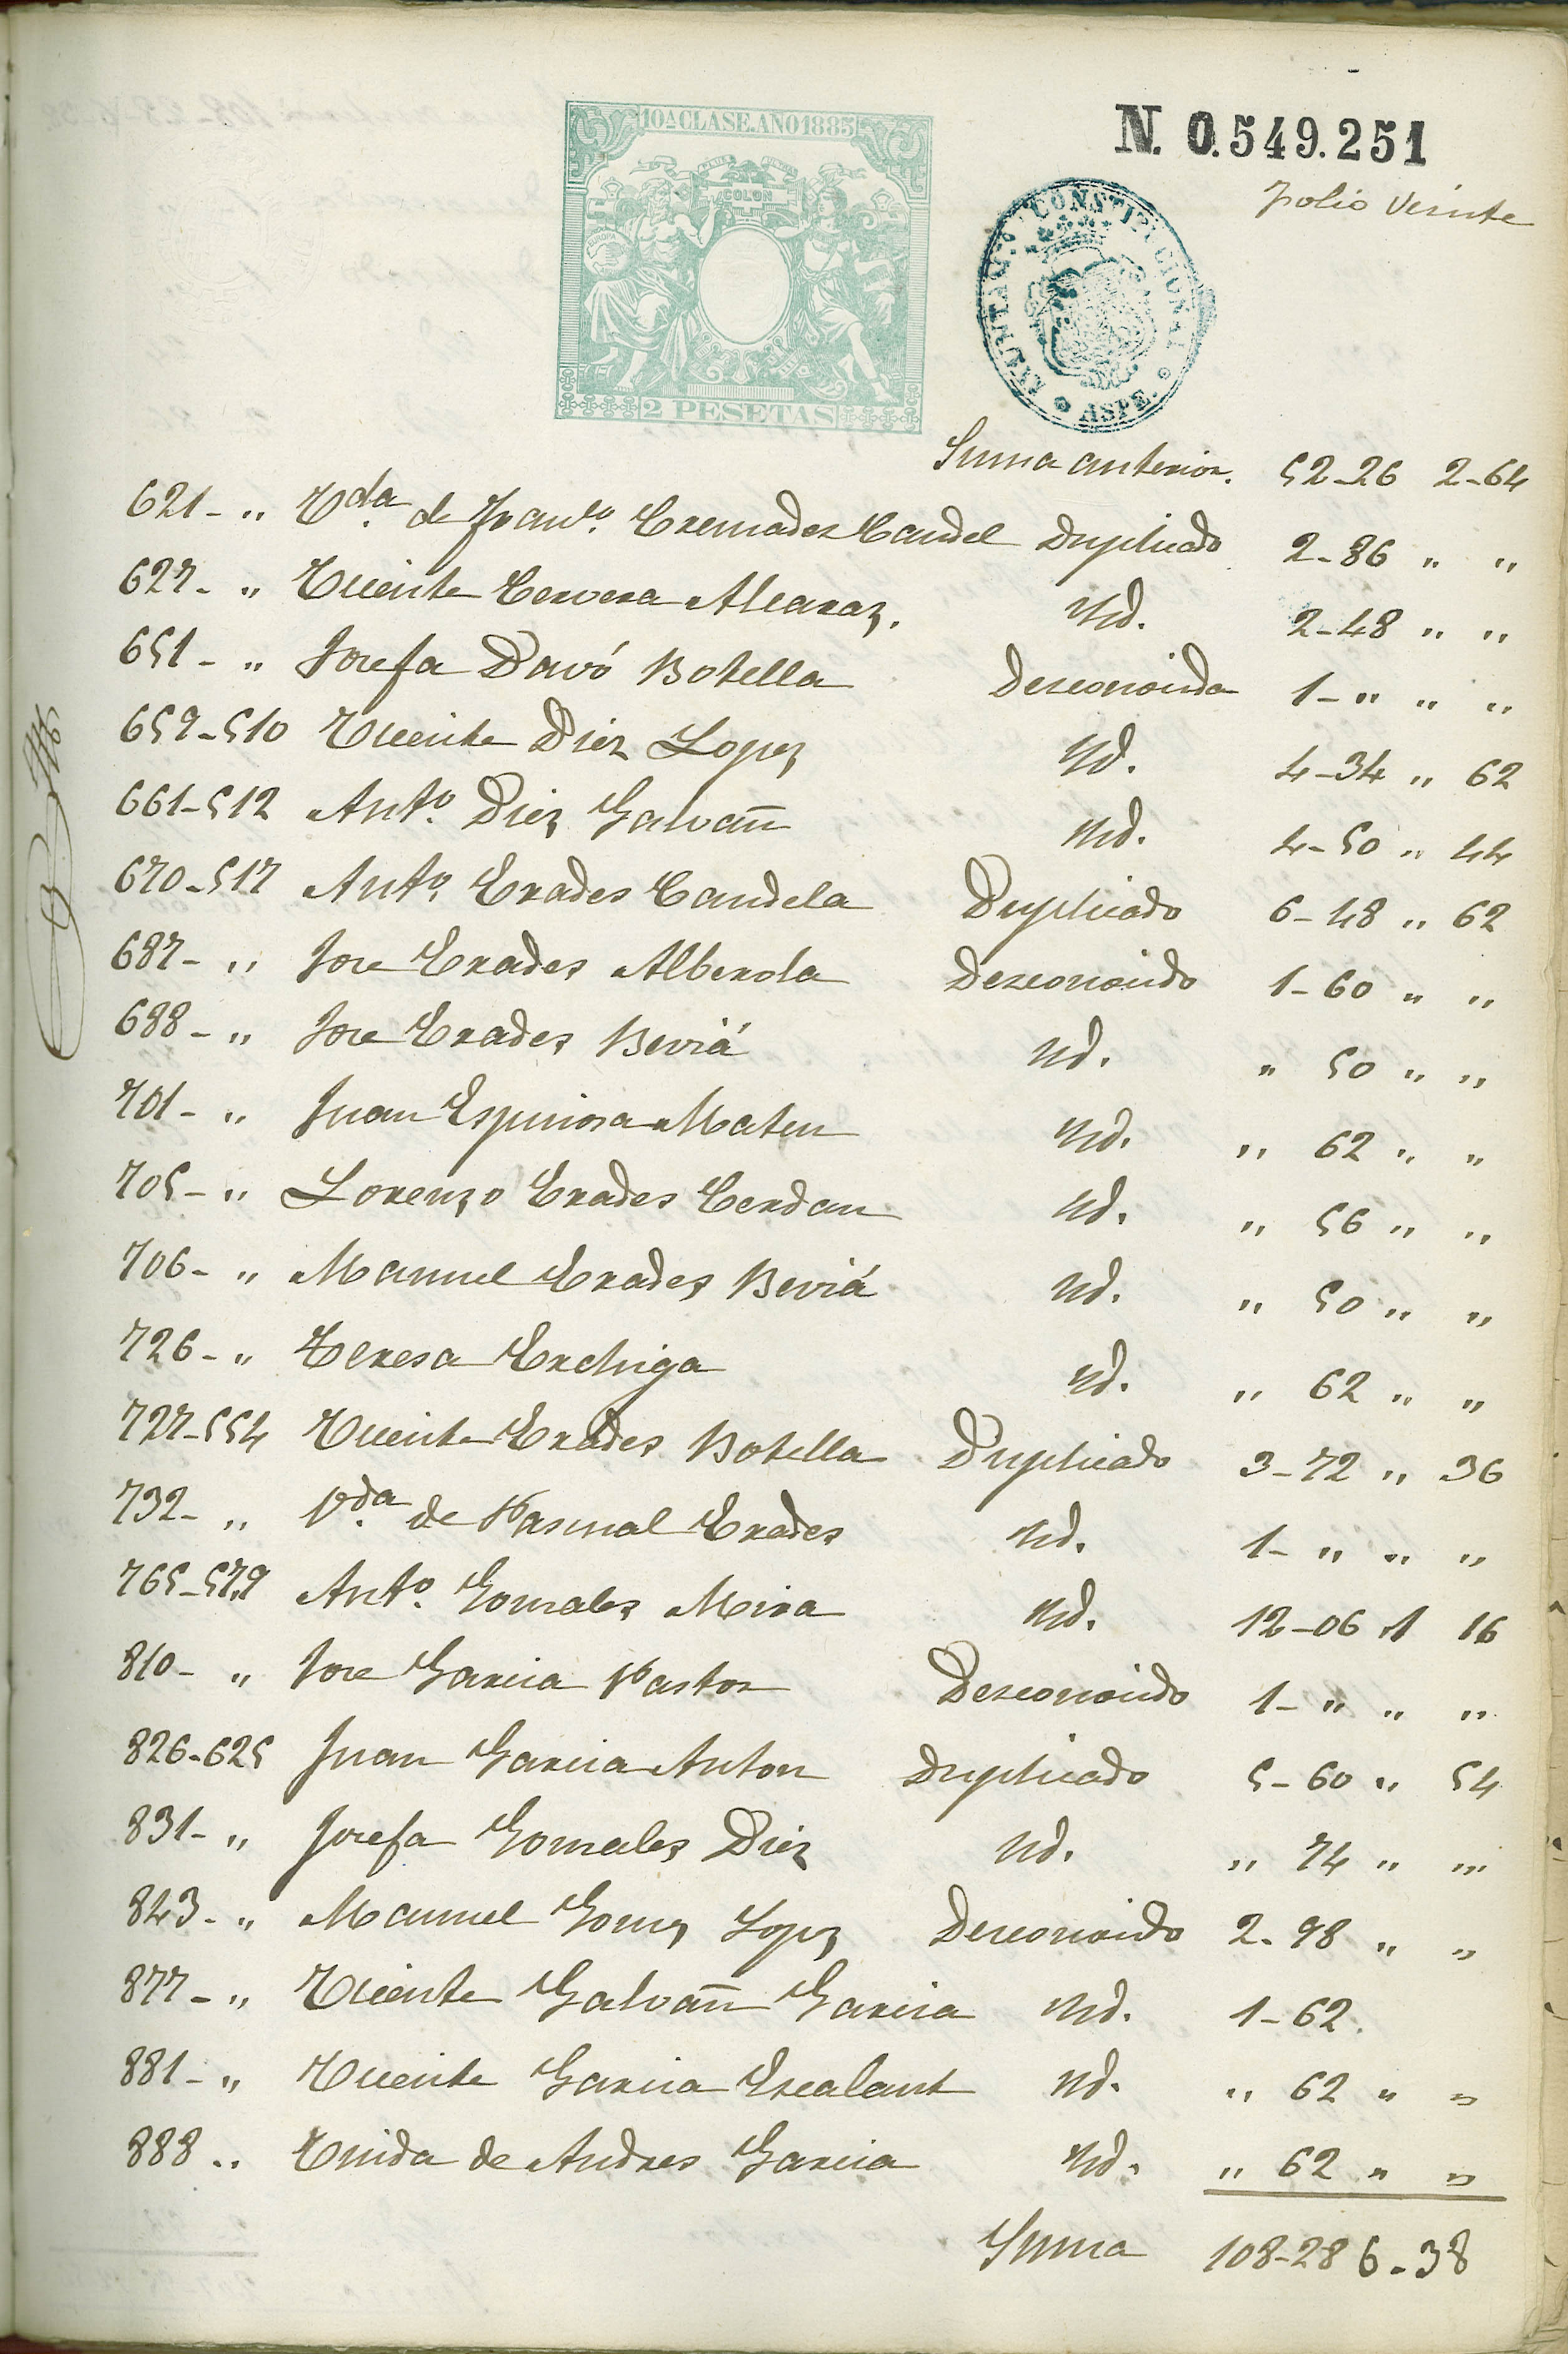 10ª CLASE. AÑO 1885
PLUS ULTRA
COLON
EUROPA
2 PESETAS
N. 0.549.251
folio veinte
CONSTITUCIONAL
ASPE.
Suma anterior. 52-26 2-64
621- " Vda. de Franco. Cremades Candel Duplicado 2-86 " "
627- " Vicente Cervera Alcaraz. Yd. 2-48 " "
651- " Josefa Davó Botella Desconocida 1- " " "
659-510 Vicente Diez Lopez Yd. 4-34 " 62
661-512 Anto. Diez Galvañ Yd. 4-50 " 44
670-517 Anto. Erades Candela Duplicado 6-48 " 62
687- " Jose Erades Alberola Desconocido 1-60 " "
688- " Jose Erades Beviá Yd. " 50 " "
701- " Juan Espinosa Mateu Yd. " 62 " "
705- " Lorenzo Erades Cerdan Yd. " 56 " "
706- " Manuel Erades Beviá Yd. " 50 " "
726- " Teresa Erchiga Yd. " 62 " "
727-554 Vicente Erades Botella Duplicado 3-72 " 36
732- " Vda. de Pascual Erades Yd. 1- " " "
765-579 Anto. Gonzales Mira Yd. 12-06 1 16
810- " Jose Garcia Pastor Desconocido 1- " " "
826-625 Juan Garcia Anton Duplicado 5-60 " 54
831- " Josefa Gonzales Diez Yd. " 74 " "
843- " Manuel Gomez Lopez Desconocido 2-98 " "
877- " Vicente Galvañ Garcia Yd. 1-62.
881- " Vicente Garcia Escalant Yd. " 62 " "
888 " Viuda de Andres Garcia Yd. " 62 " "
Suma 108-28 6-38